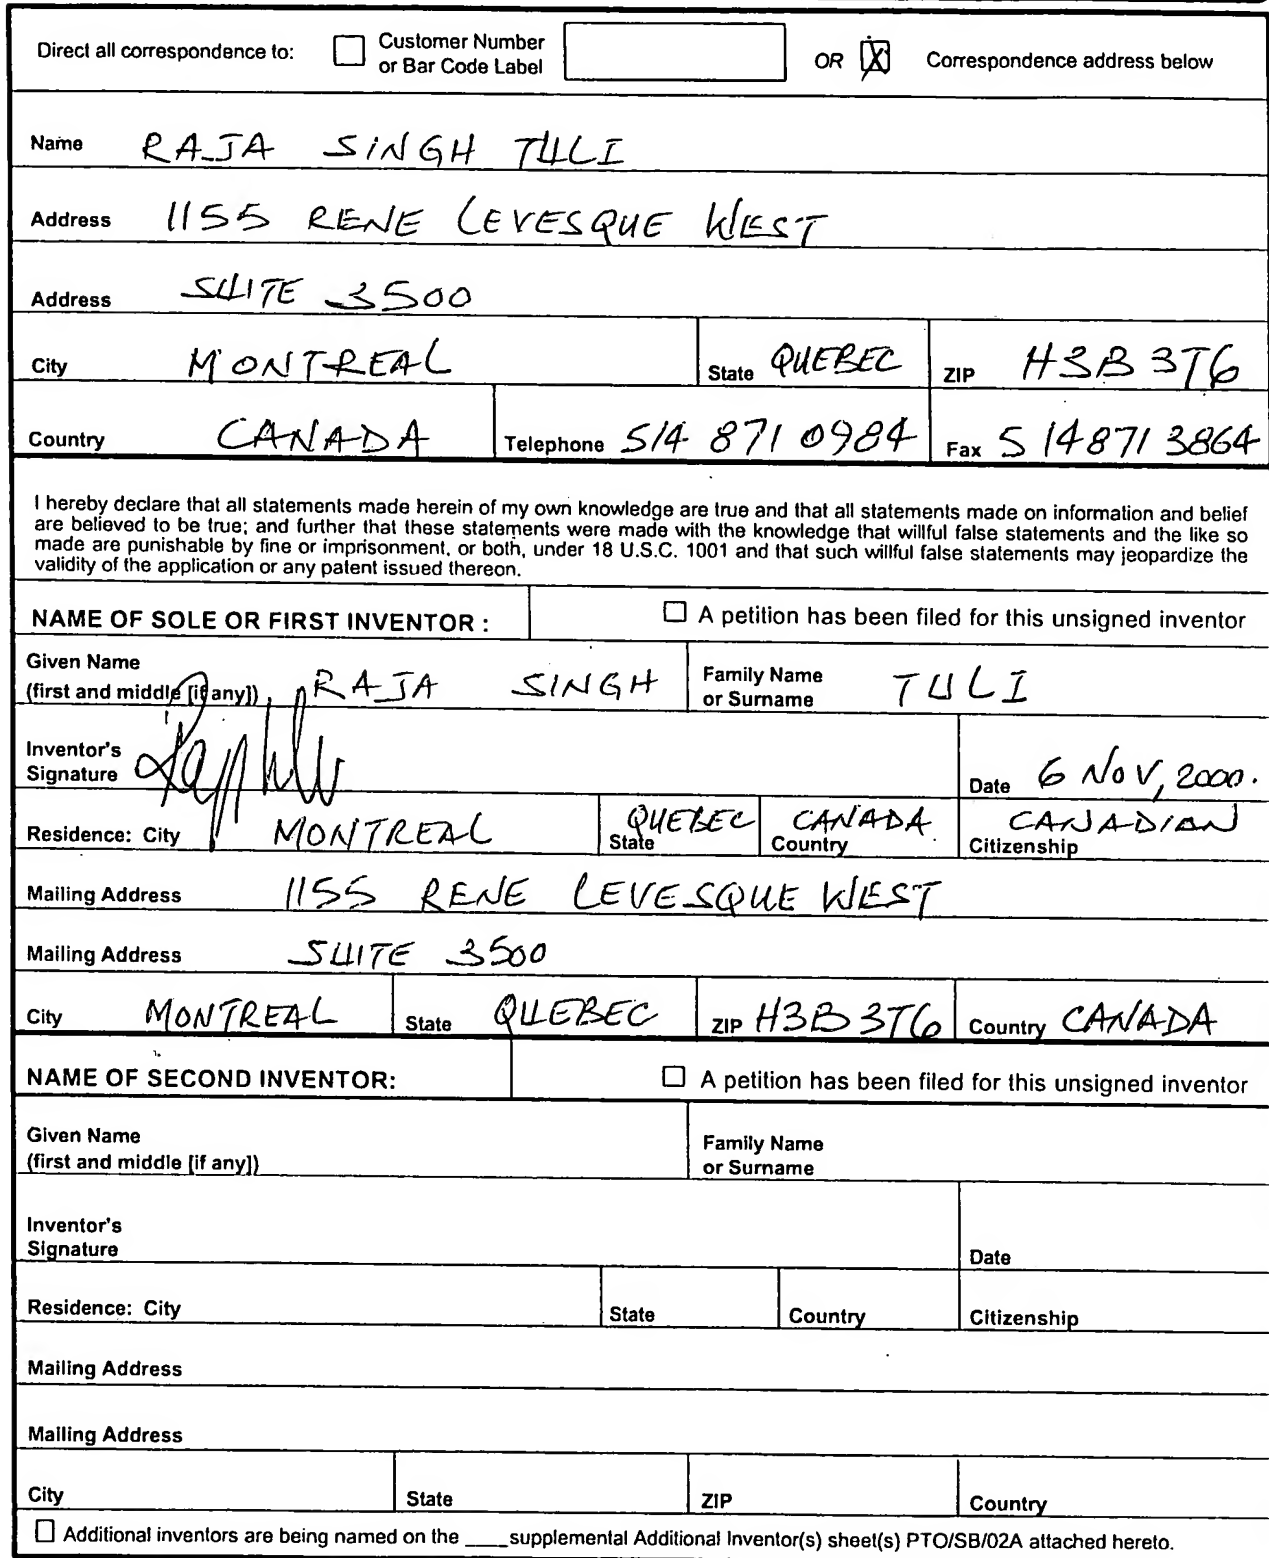 Direct all correspondence to: ☐ Customer Number or Bar Code Label OR ☒ Correspondence address below
Name RAJA SINGH TULI
Address 1155 RENE LEVESQUE WEST
Address SUITE 3500
City MONTREAL State QUEBEC ZIP H3B 3T6
Country CANADA Telephone 514 871 0984 Fax 5148713864
I hereby declare that all statements made herein of my own knowledge are true and that all statements made on information and belief
are believed to be true; and further that these statements were made with the knowledge that willful false statements and the like so
made are punishable by fine or imprisonment, or both, under 18 U.S.C. 1001 and that such willful false statements may jeopardize the
validity of the application or any patent issued thereon.
NAME OF SOLE OR FIRST INVENTOR : ☐ A petition has been filed for this unsigned inventor
Given Name (first and middle [if any]) RAJA SINGH Family Name or Surname TULI
Inventor's Signature Date 6 NOV, 2000.
Residence: City MONTREAL State QUEBEC Country CANADA Citizenship CANADIAN
Mailing Address 1155 RENE LEVESQUE WEST
Mailing Address SUITE 3500
City MONTREAL State QUEBEC ZIP H3B 3T6 Country CANADA
NAME OF SECOND INVENTOR: ☐ A petition has been filed for this unsigned inventor
Given Name (first and middle [if any]) Family Name or Surname
Inventor's Signature Date
Residence: City State Country Citizenship
Mailing Address
Mailing Address
City State ZIP Country
☐ Additional inventors are being named on the ____ supplemental Additional Inventor(s) sheet(s) PTO/SB/02A attached hereto.